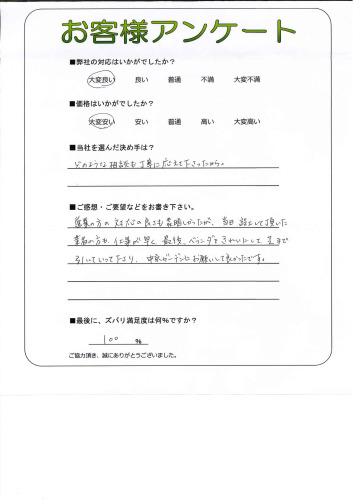 お客様アンケート
■弊社の対応はいかがでしたか？
大変良い 良い 普通 不満 大変不満
■価格はいかがでしたか？
大変安い 安い 普通 高い 大変高い
■当社を選んだ決め手は？
どのような相談も丁寧に応えて下さったから。
■ご感想・ご要望などをお書き下さい。
営業の方の対応の良さも素晴しかったが、当日施工して頂いた
業者の方も、仕事が早く、最後、ベランダまできれいにして
引いていって下さり、お願いして良かったです。
■最後に、ズバリ満足度は何％ですか？
100 ％
ご協力頂き、誠にありがとうございました。